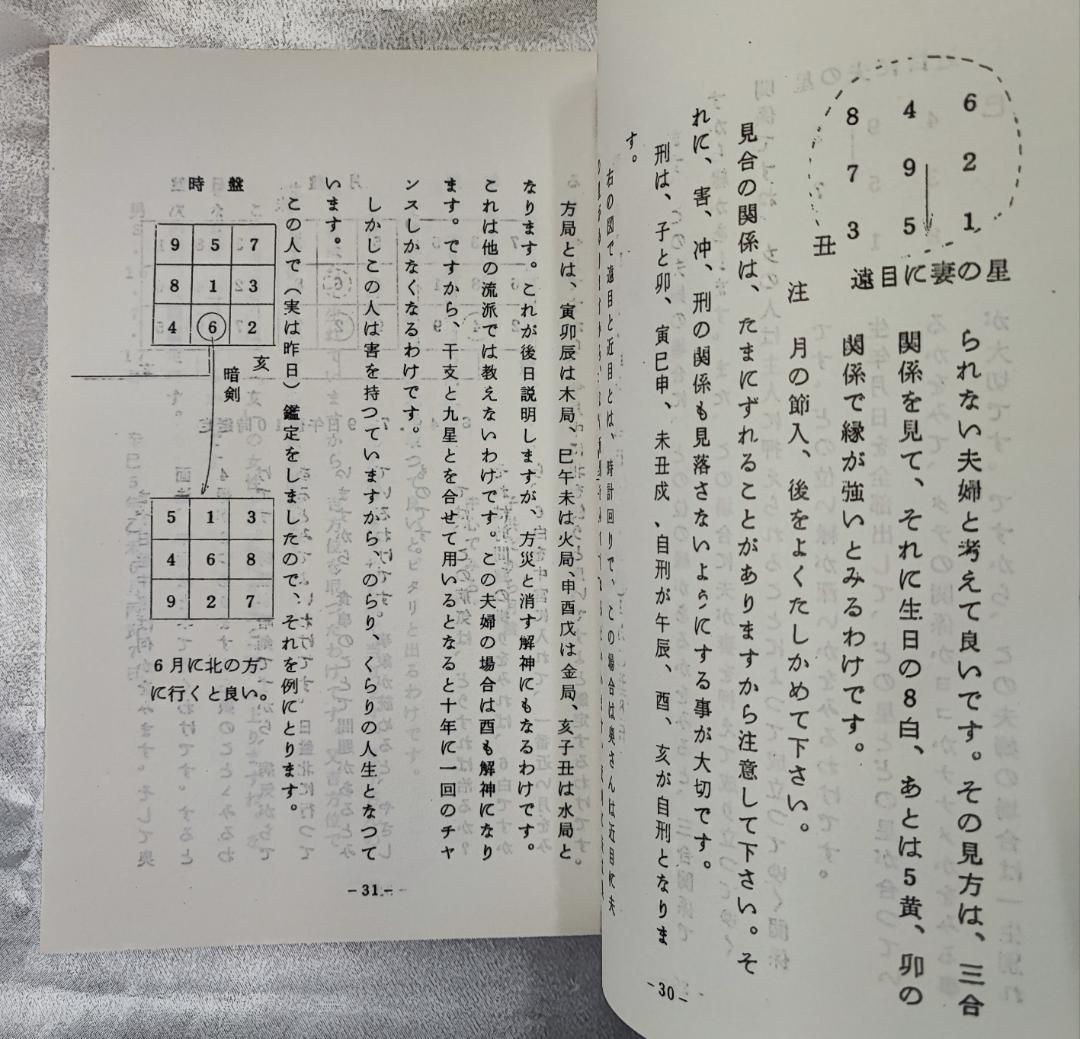 6 2 1
4 9 5
8 7 3
丑
遠目に妻の星
られない夫婦と考えて良いです。その見方は、三合
関係を見て、それに生日の8白、あとは5黄、卯の
関係で縁が強いとみるわけです。
注 月の節入、後をよくたしかめて下さい。
見合の関係は、たまにずれることがありますから注意して下さい。そ
れに、害、冲、刑の関係も見落さないようにする事が大切です。
刑は、子と卯、寅巳申、未丑戌、自刑が午辰、酉、亥が自刑となりま
す。
右の図で遠目と近目とは、時計回りで、この場合は奥さんは近目に夫
-30-
方局とは、寅卯辰は木局、巳午未は火局、申酉戊は金局、亥子丑は水局と
なります。これが後日説明しますが、方災と消す解神にもなるわけです。
これは他の流派では教えないわけです。この夫婦の場合は酉も解神になり
ます。ですから、干支と九星とを合せて用いるとなると十年に一回のチャ
ンスしかなくなるわけです。
しかしこの人は害を持つていますから、のらり、くらりの人生となつて
います。
この人で（実は昨日）鑑定をしましたので、それを例にとります。
時盤
9 5 7
8 1 3
4 6 2
亥
暗剣
5 1 3
4 6 8
9 2 7
6月に北の方
に行くと良い。
-31-